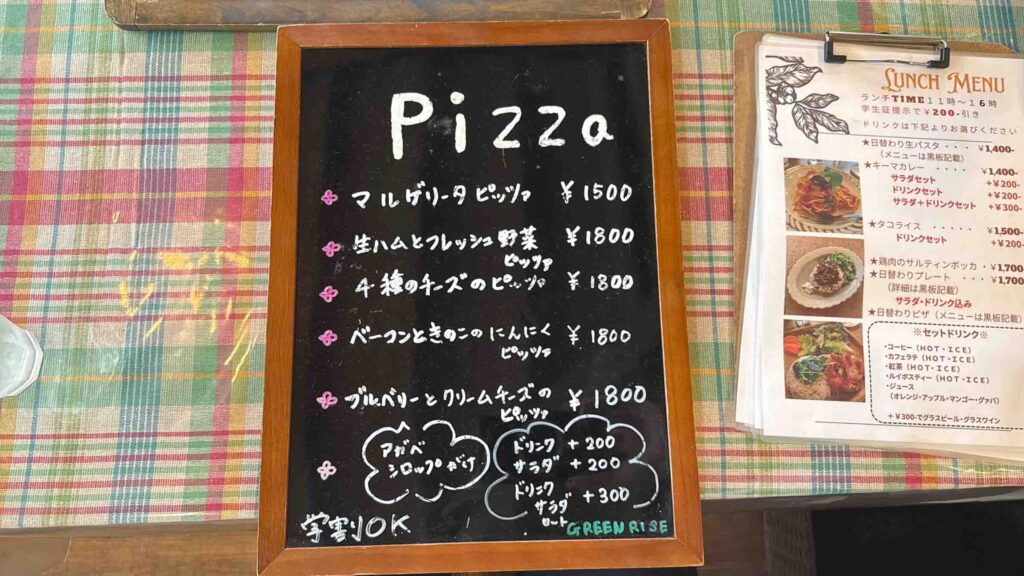 Pizza
マルゲリータ ピッツァ ¥1500
生ハムとフレッシュ野菜 ¥1800
ピッツァ
4種のチーズのピッツァ ¥1800
ベーコンときのこのにんにく ¥1800
ピッツァ
ブルベリーとクリームチーズの ¥1800
ピッツァ
アガベ
シロップがけ
ドリンク +200
サラダ +200
ドリンク
サラダ +300
セット
学割OK
GREEN RISE
LUNCH MENU
ランチTIME11時〜16時
学生証提示で¥200-引き
ドリンクは下記よりお選びください
★日替わり生パスタ・・・・ ¥1,400-
(メニューは黒板記載)
★キーマカレー ・・・・ ¥1,400-
サラダセット +¥200-
ドリンクセット +¥200-
サラダ+ドリンクセット +¥300-
★タコライス ・・・・・ ¥1,500-
ドリンクセット +¥200-
★鶏肉のサルティンボッカ ・ ¥1,700
★日替わりプレート ・・・・ ¥1,700
(詳細は黒板記載)
サラダ・ドリンク込み
★日替わりピザ (メニューは黒板記載)
※セットドリンク※
・コーヒー(HOT・ICE)
・カフェラテ(HOT・ICE)
・紅茶(HOT・ICE)
・ルイボスティー(HOT・ICE)
・ジュース
(オレンジ・アップル・マンゴー・グァバ)
+¥300-でグラスビール・グラスワイン